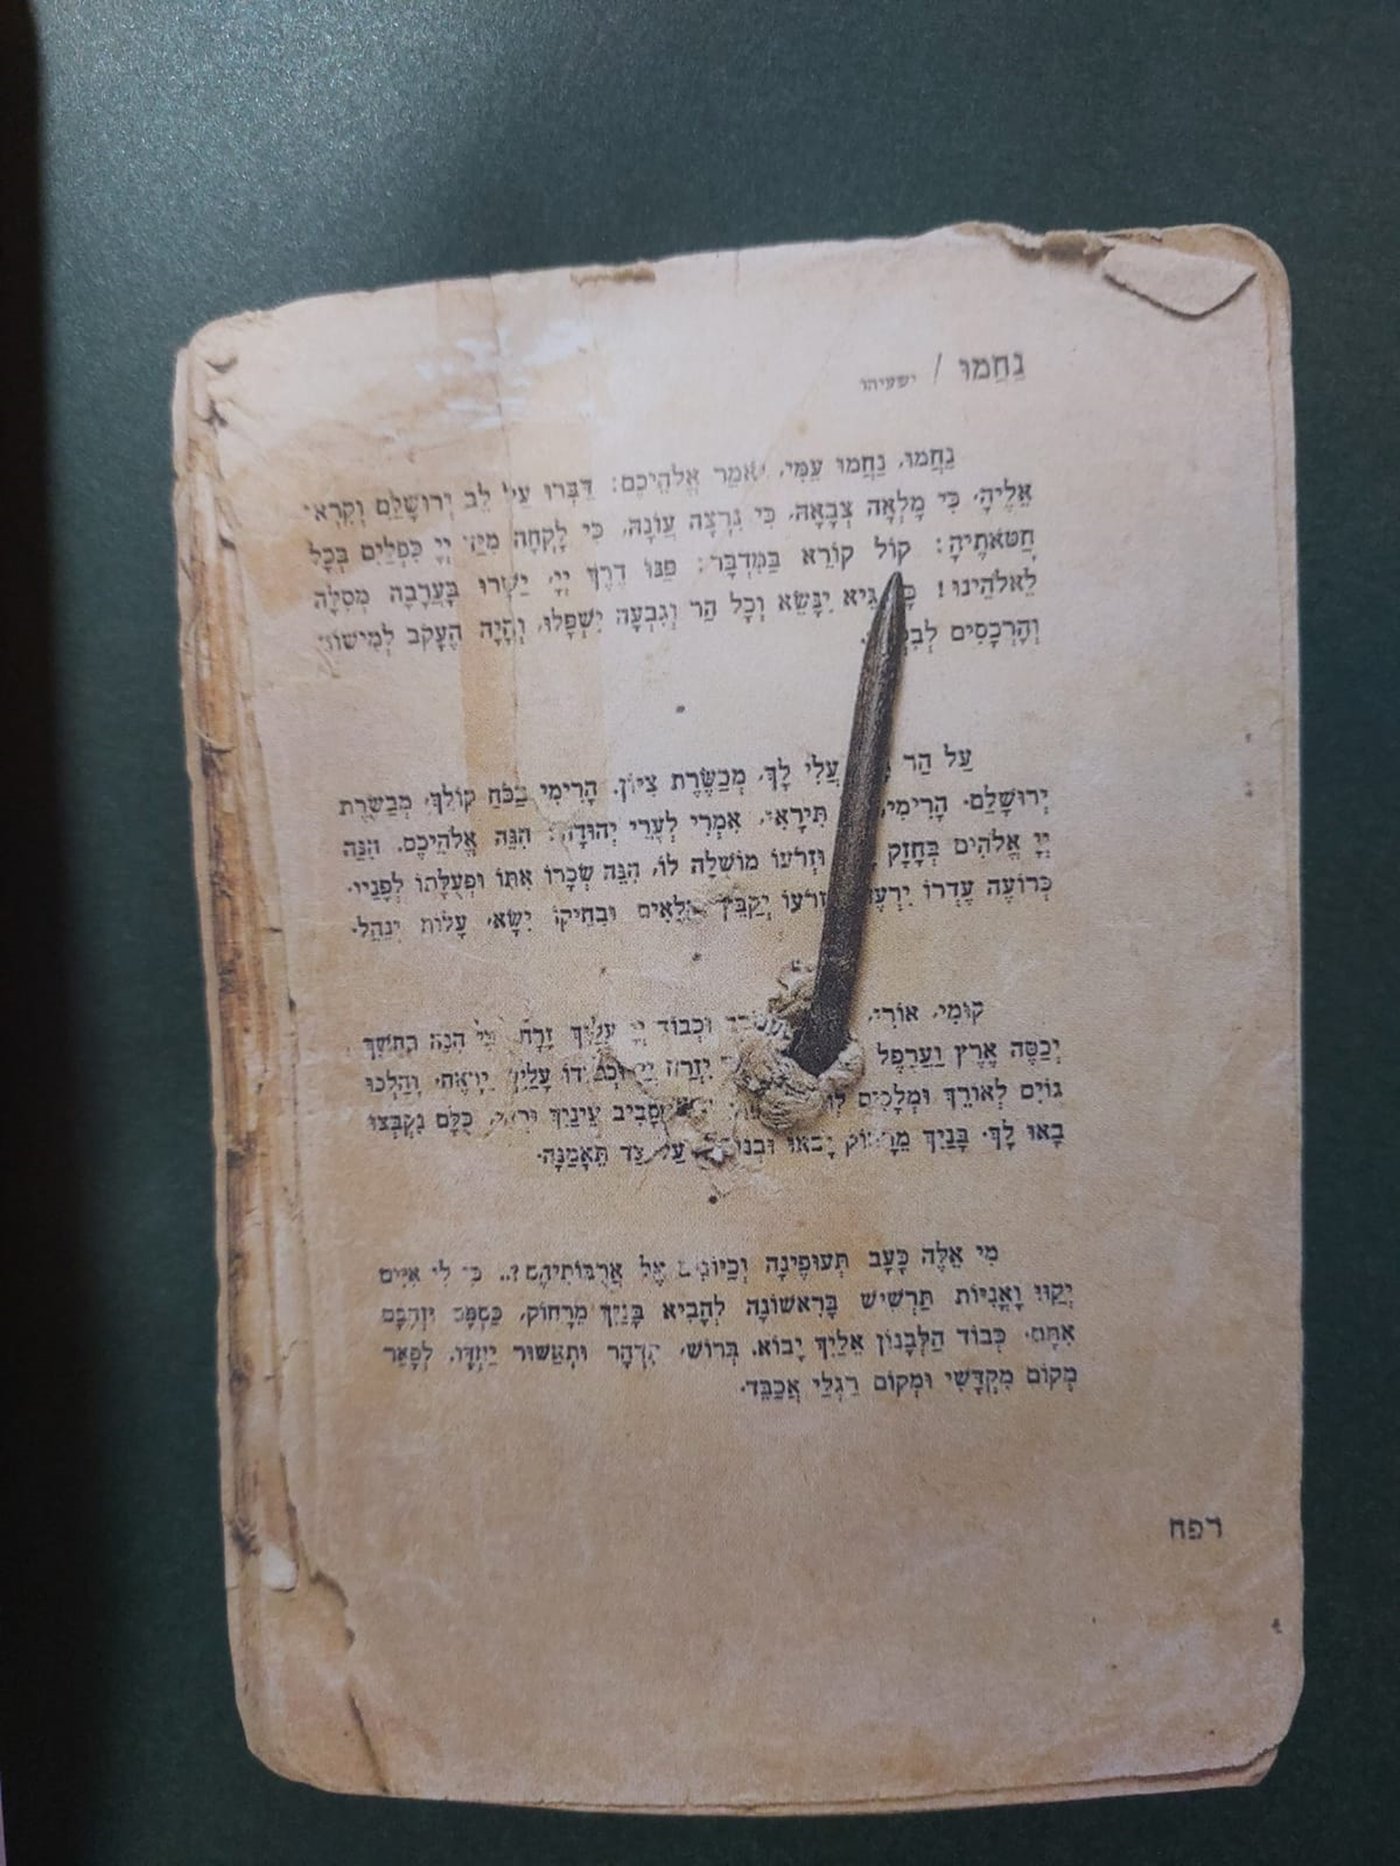 נַחֲמוּ / ישעיהו
נַחֲמוּ, נַחֲמוּ עַמִּי, יֹאמַר אֱלֹהֵיכֶם: דַּבְּרוּ עַל לֵב יְרוּשָׁלַם וְקִרְאוּ
אֵלֶיהָ, כִּי מָלְאָה צְבָאָהּ, כִּי נִרְצָה עֲוֹנָהּ, כִּי לָקְחָה יְיָ כִּפְלַיִם בְּכָל
חַטֹּאתֶיהָ: קוֹל קוֹרֵא בַּמִּדְבָּר: פַּנּוּ דֶרֶךְ יְיָ, יַשְּׁרוּ בָּעֲרָבָה מְסִלָּה
לֵאלֹהֵינוּ! גֶּיא יִנָּשֵׂא וְכָל הַר וְגִבְעָה יִשְׁפָּלוּ, וְהָיָה הֶעָקֹב לְמִישׁוֹר
וְהָרְכָסִים
עַל הַר עֲלִי לָךְ, מְבַשֶּׂרֶת צִיּוֹן. הָרִימִי בַכֹּחַ קוֹלֵךְ, מְבַשֶּׂרֶת
יְרוּשָׁלַם. הָרִימִי, תִּירָאִי, אִמְרִי לְעָרֵי יְהוּדָה: הִנֵּה אֱלֹהֵיכֶם. הִנֵּה
יְיָ אֱלֹהִים בְּחָזָק וּזְרֹעוֹ מוֹשְׁלָה לוֹ, הִנֵּה שְׂכָרוֹ אִתּוֹ וּפְעֻלָּתוֹ לְפָנָיו.
כְּרוֹעֶה עֶדְרוֹ יִרְעֶה, יְקַבֵּץ טְלָאִים וּבְחֵיקוֹ יִשָּׂא, עָלוֹת יְנַהֵל.
קוּמִי, אוֹרִי, וּכְבוֹד יְיָ עָלַיִךְ זָרָח כִּי הִנֵּה הַחֹשֶׁךְ
יְכַסֶּה אֶרֶץ וַעֲרָפֶל יִזְרַח יְיָ וּכְבוֹדוֹ עָלַיִךְ יֵרָאֶה, וְהָלְכוּ
גוֹיִם לְאוֹרֵךְ וּמְלָכִים סָבִיב עֵינַיִךְ וּרְאִי, כֻּלָּם נִקְבְּצוּ
בָאוּ לָךְ. בָּנַיִךְ מֵרָחוֹק יָבֹאוּ עַל צַד תֵּאָמַנָה.
מִי אֵלֶּה כָּעָב תְּעוּפֶינָה וְכַיּוֹנִים אֶל אֲרֻבּוֹתֵיהֶם?.. כִּי לִי אִיִּים
יְקַוּוּ וָאֳנִיּוֹת תַּרְשִׁישׁ בָּרִאשׁוֹנָה לְהָבִיא בָּנַיִךְ מֵרָחוֹק, כַּסְפָּם וּזְהָבָם
אִתָּם. כְּבוֹד הַלְּבָנוֹן אֵלַיִךְ יָבוֹא. בְּרוֹשׁ, תִּדְהָר וּתְאַשּׁוּר יַחְדָּו, לְפָאֵר
מְקוֹם מִקְדָּשִׁי וּמְקוֹם רַגְלַי אֲכַבֵּד.
רפח